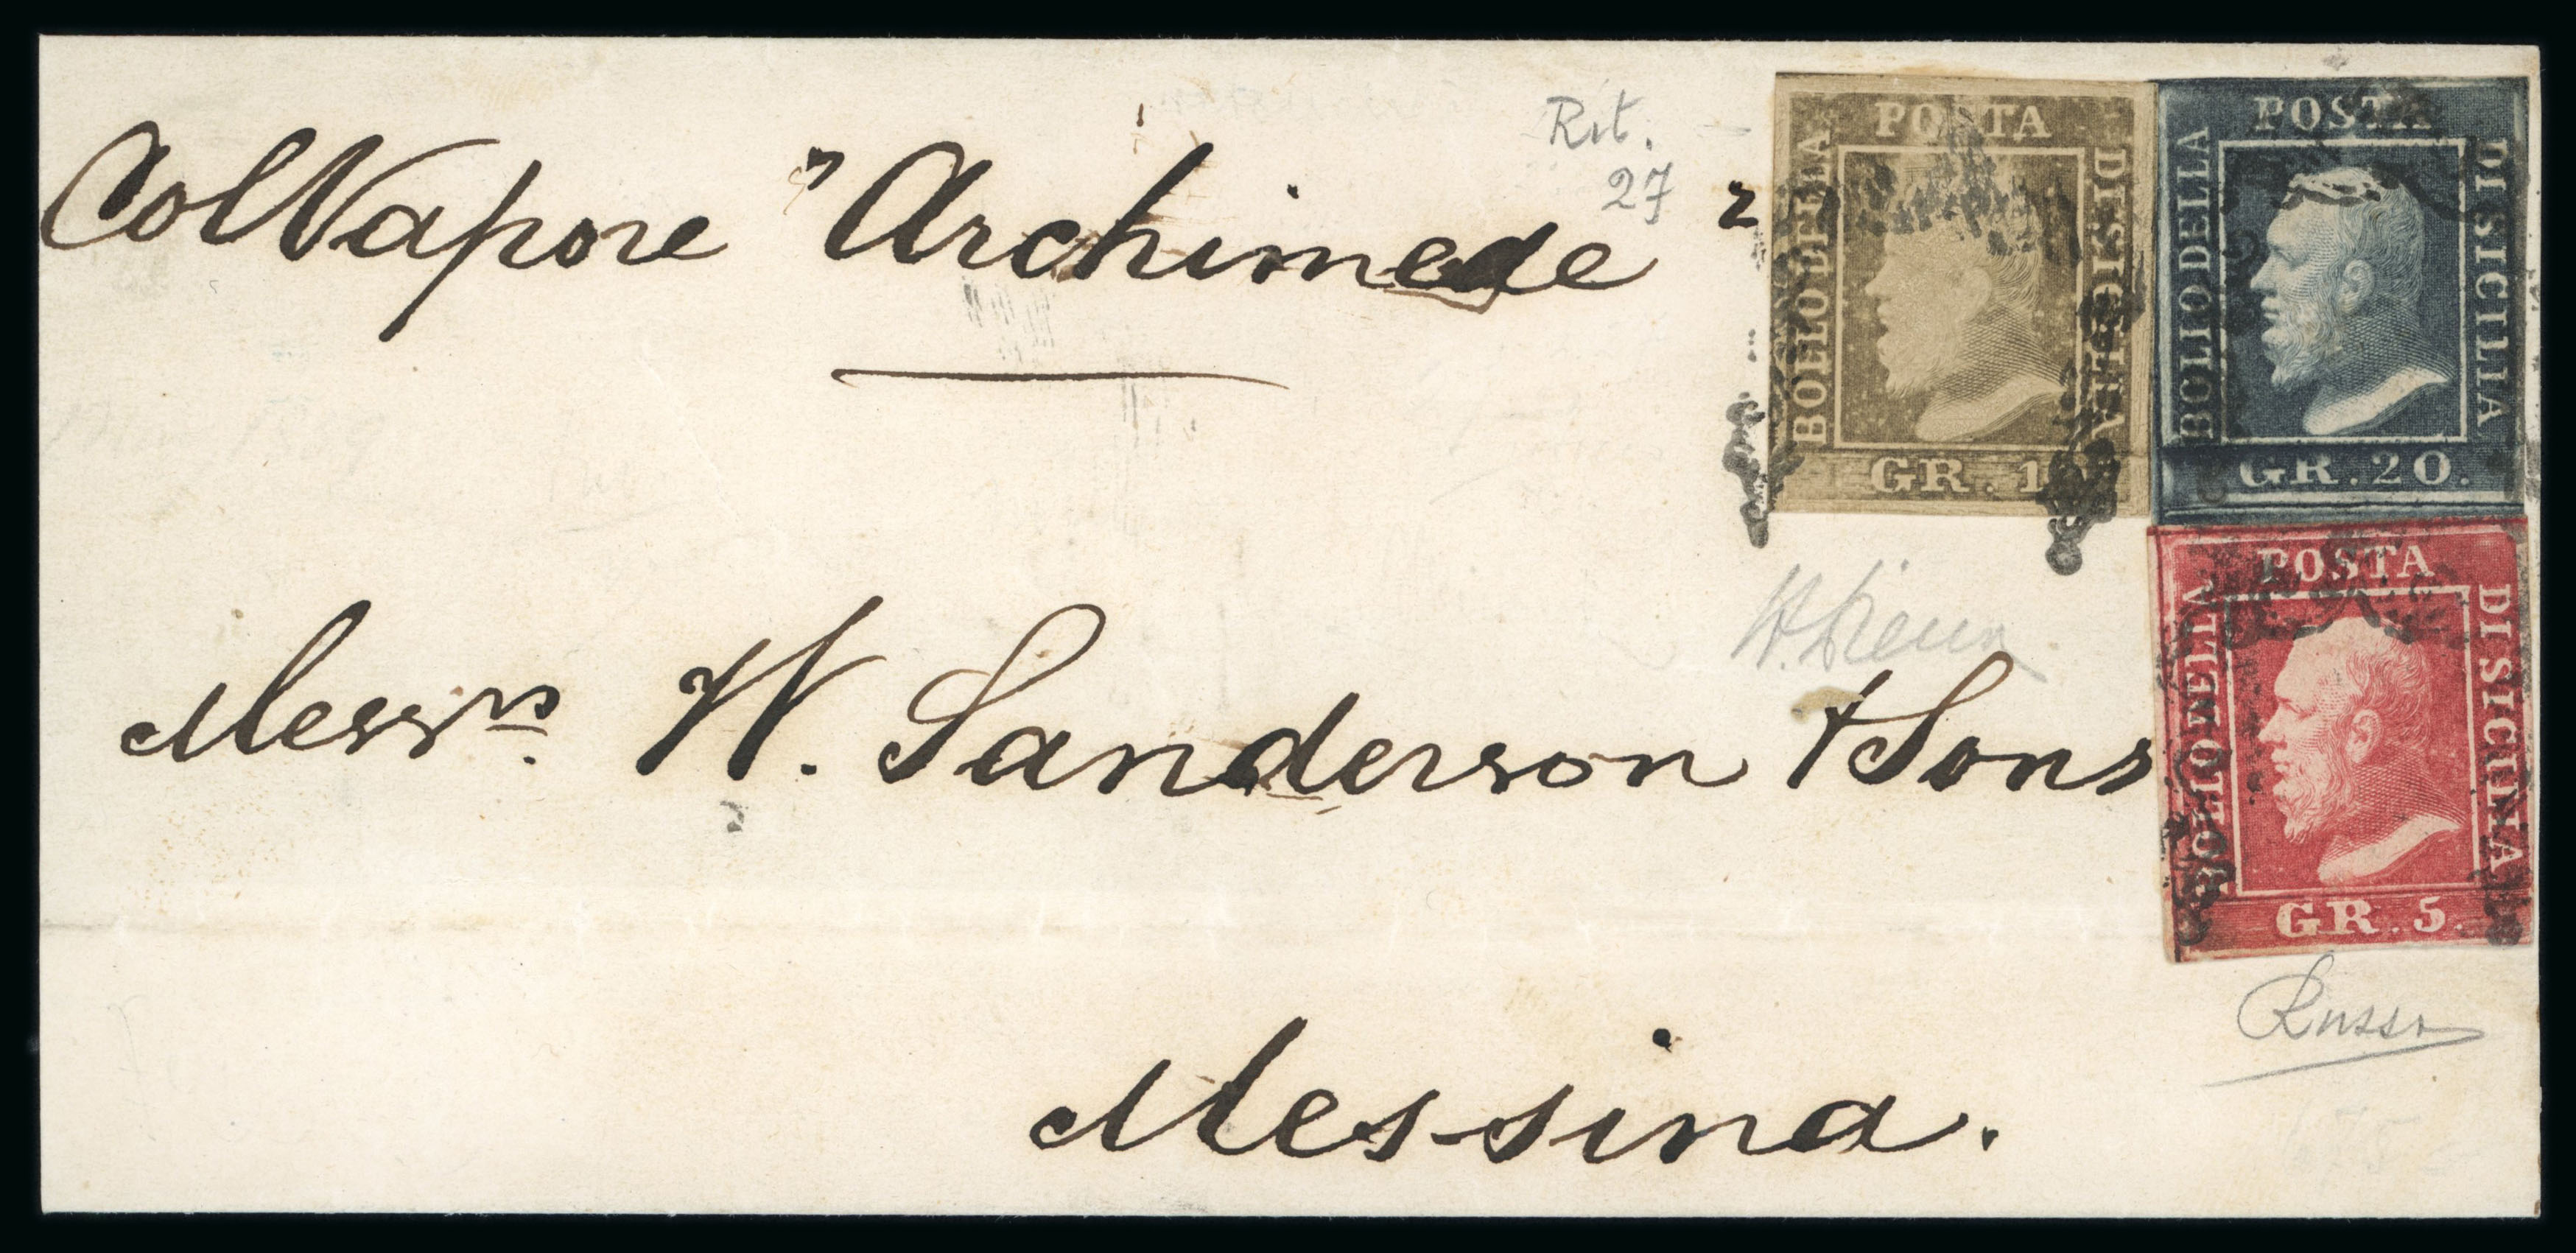 Col Vapore "Archimede"
Rit.
27
Messrs. W. Sanderson & Sons
Messina.
POSTA
BOLLO DELLA
DI SICILIA
GR. 1
POSTA
BOLLO DELLA
DI SICILIA
GR. 20.
POSTA
BOLLO DELLA
DI SICILIA
GR. 5.
Russo